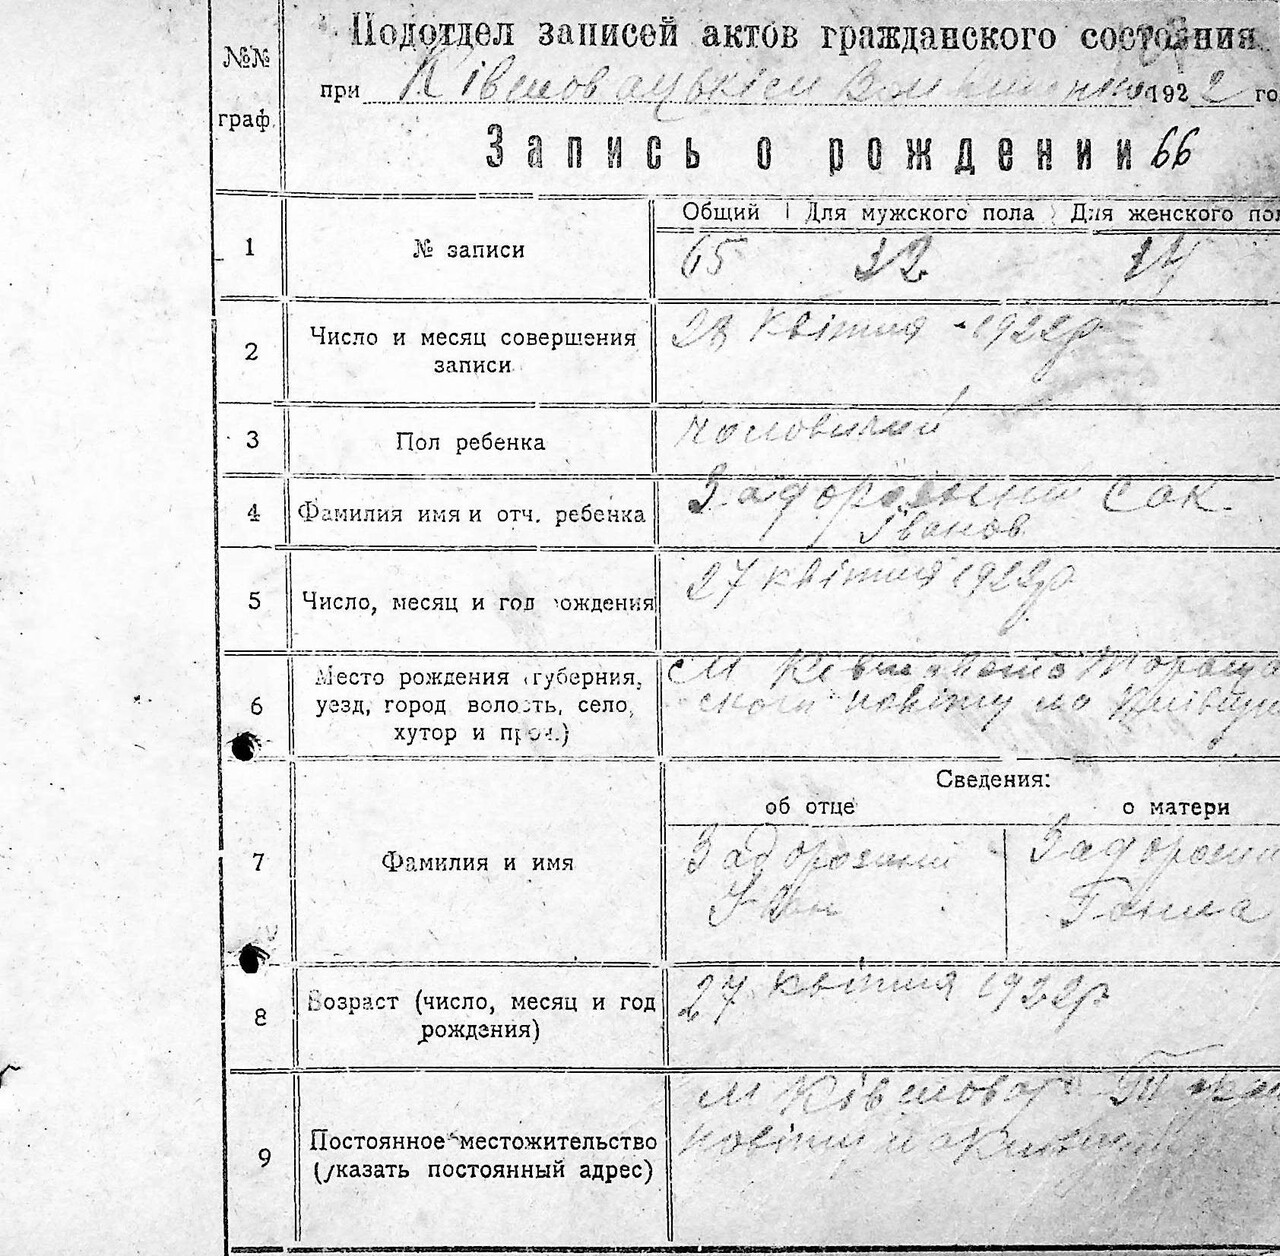 Подотдел записей актов гражданского состояния
№№
граф.
при 1922 го
Запись о рождении 66
Общий Для мужского пола Для женского пол
1 № записи 65 32 34
2 Число и месяц совершения 28 квітня - 1922р
записи
3 Пол ребенка чоловичий
4 Фамилия имя и отч. ребенка Задорожний Сак
Іванов
5 Число, месяц и год рождения 27 квітня 1922р
6 Место рождения (губерния, м
уезд, город волость, село, повіту на Київщ
хутор и проч.)
Сведения:
об отце о матери
7 Фамилия и имя Задорожний Задорожн
Іван Ганна
8 Возраст (число, месяц и год 27 квітня 1922р
рождения)
9 Постоянное местожительство м
(указать постоянный адрес) повіту на